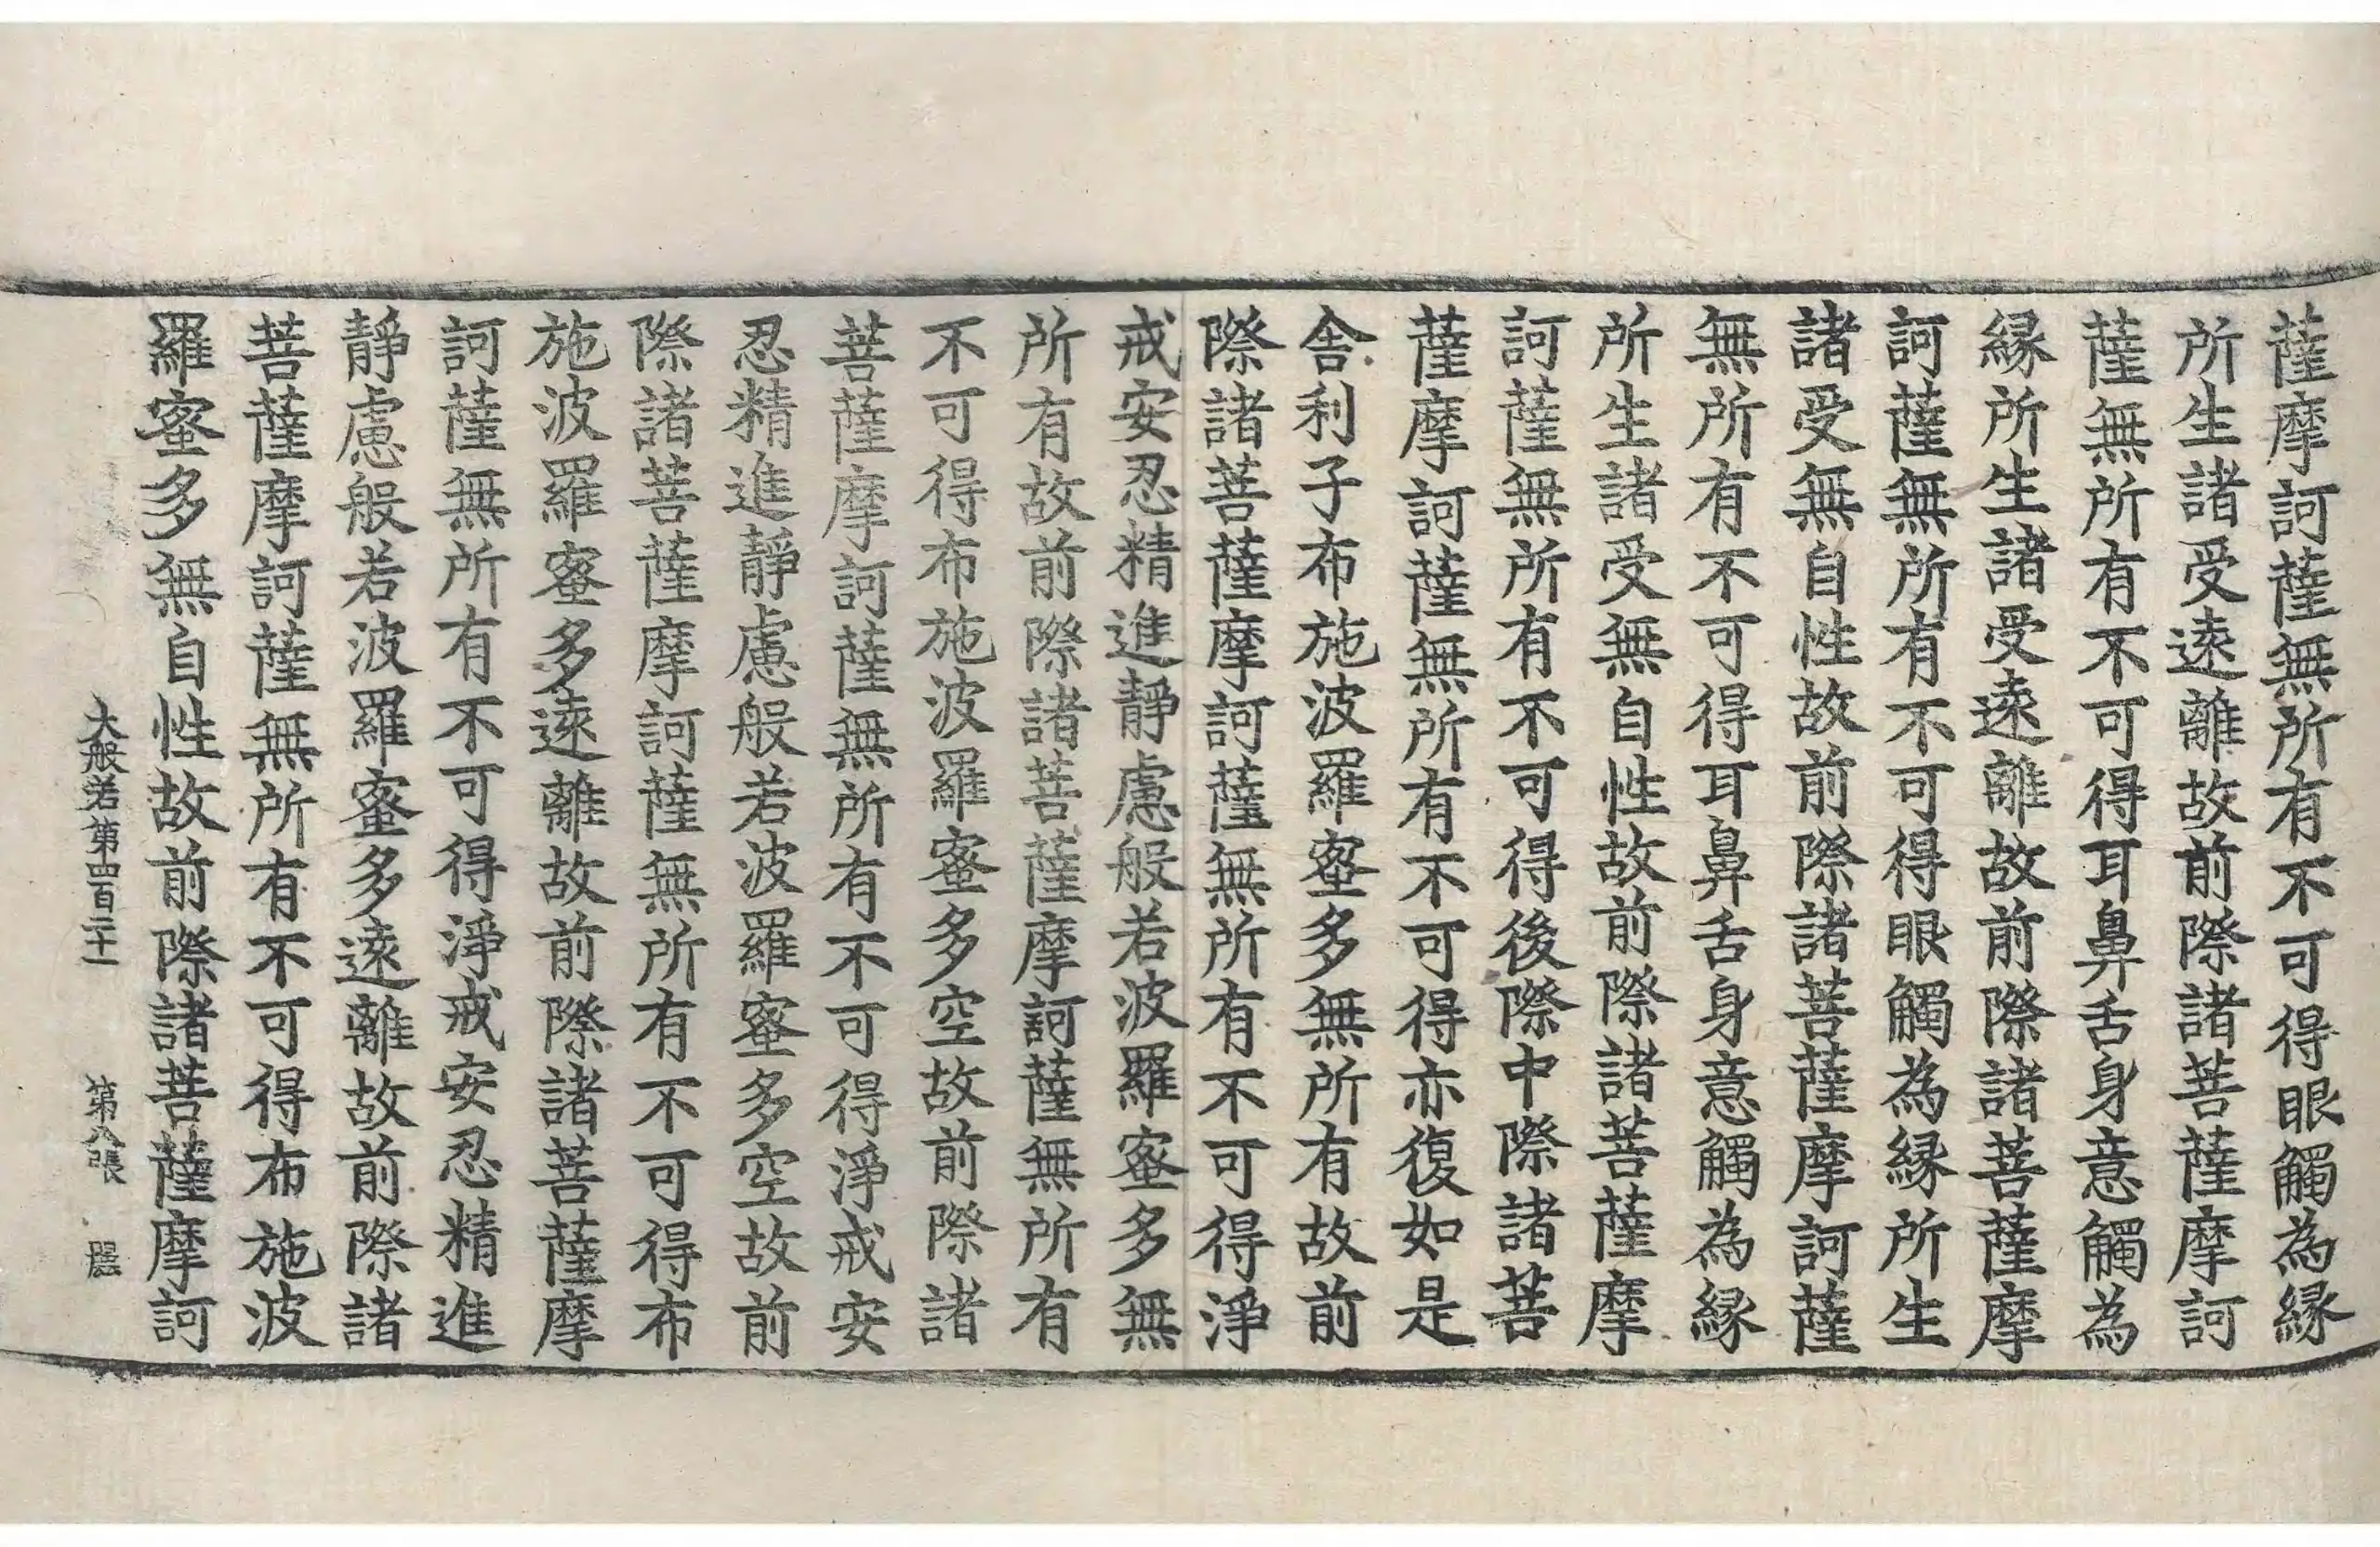 薩摩訶薩無所有不可得眼觸為縁
所生諸受遠離故前際諸菩薩摩訶
薩無所有不可得耳鼻舌身意觸為
縁所生諸受遠離故前際諸菩薩摩
訶薩無所有不可得眼觸為縁所生
諸受無自性故前際諸菩薩摩訶薩
無所有不可得耳鼻舌身意觸為縁
所生諸受無自性故前際諸菩薩摩
訶薩無所有不可得後際中際諸菩
薩摩訶薩無所有不可得亦復如是
舍利子布施波羅蜜多無所有故前
際諸菩薩摩訶薩無所有不可得淨
戒安忍精進靜慮般若波羅蜜多無
所有故前際諸菩薩摩訶薩無所有
不可得布施波羅蜜多空故前際諸
菩薩摩訶薩無所有不可得淨戒安
忍精進靜慮般若波羅蜜多空故前
際諸菩薩摩訶薩無所有不可得布
施波羅蜜多遠離故前際諸菩薩摩
訶薩無所有不可得淨戒安忍精進
靜慮般若波羅蜜多遠離故前際諸
菩薩摩訶薩無所有不可得布施波
羅蜜多無自性故前際諸菩薩摩訶
大般若第四百二十一 第八張